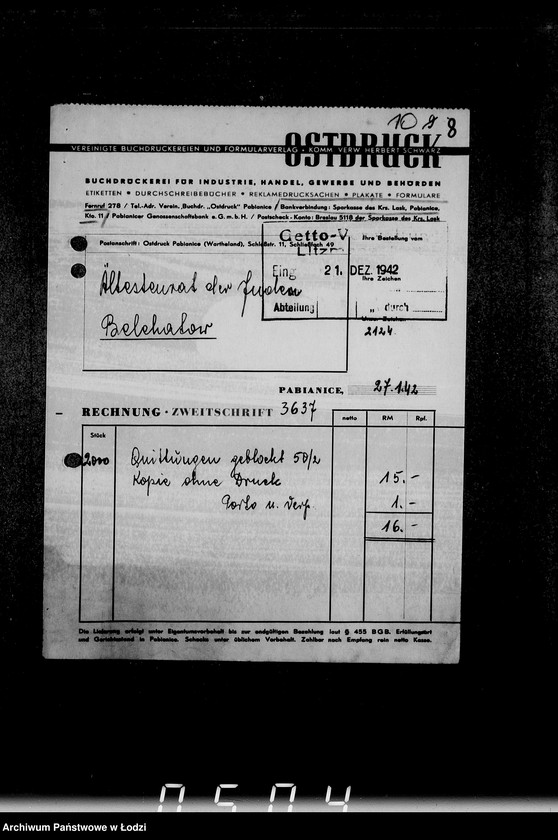 10 8 8
OSTDRUCK
VEREINIGTE BUCHDRUCKEREIEN UND FORMULARVERLAG • KOMM. VERW HERBERT SCHWARZ
BUCHDRUCKEREI FÜR INDUSTRIE, HANDEL, GEWERBE UND BEHÖRDEN
ETIKETTEN • DURCHSCHREIBEBÜCHER • REKLAMEDRUCKSACHEN • PLAKATE • FORMULARE
Fernruf 278 / Tel.-Adr. Verein. Buchdr. „Ostdruck" Pabianice / Bankverbindung: Sparkasse des Krs. Lask, Pabianice,
Kto. 11 / Pabianicer Genossenschaftsbank e.G.m.b.H. / Postscheck-Konto: Breslau 5118 der Sparkasse des Krs. Lask
Postanschrift: Ostdruck Pabianice (Wartheland), Schloßstr. 11, Schließfach 49
Getto-V
Litzm
Ihre Bestellung vom
Eing 21. DEZ. 1942
Ihre Zeichen
Abteilung
„ durch
Ältestenrat der Juden
Belchatow
2124
PABIANICE, 27.1.42
RECHNUNG • ZWEITSCHRIFT 3637
netto RM Rpf.
Stück
2000 Quittungen geblockt 50/2
Kopie ohne Druck 15.-
Porto u. Verp. 1.-
16.-
Die Lieferung erfolgt unter Eigentumsvorbehalt bis zur endgültigen Bezahlung laut § 455 BGB. Erfüllungsort
und Gerichtsstand in Pabianice. Schecks unter üblichem Vorbehalt. Zahlbar nach Empfang rein netto Kasse.
0504
Archiwum Państwowe w Łodzi